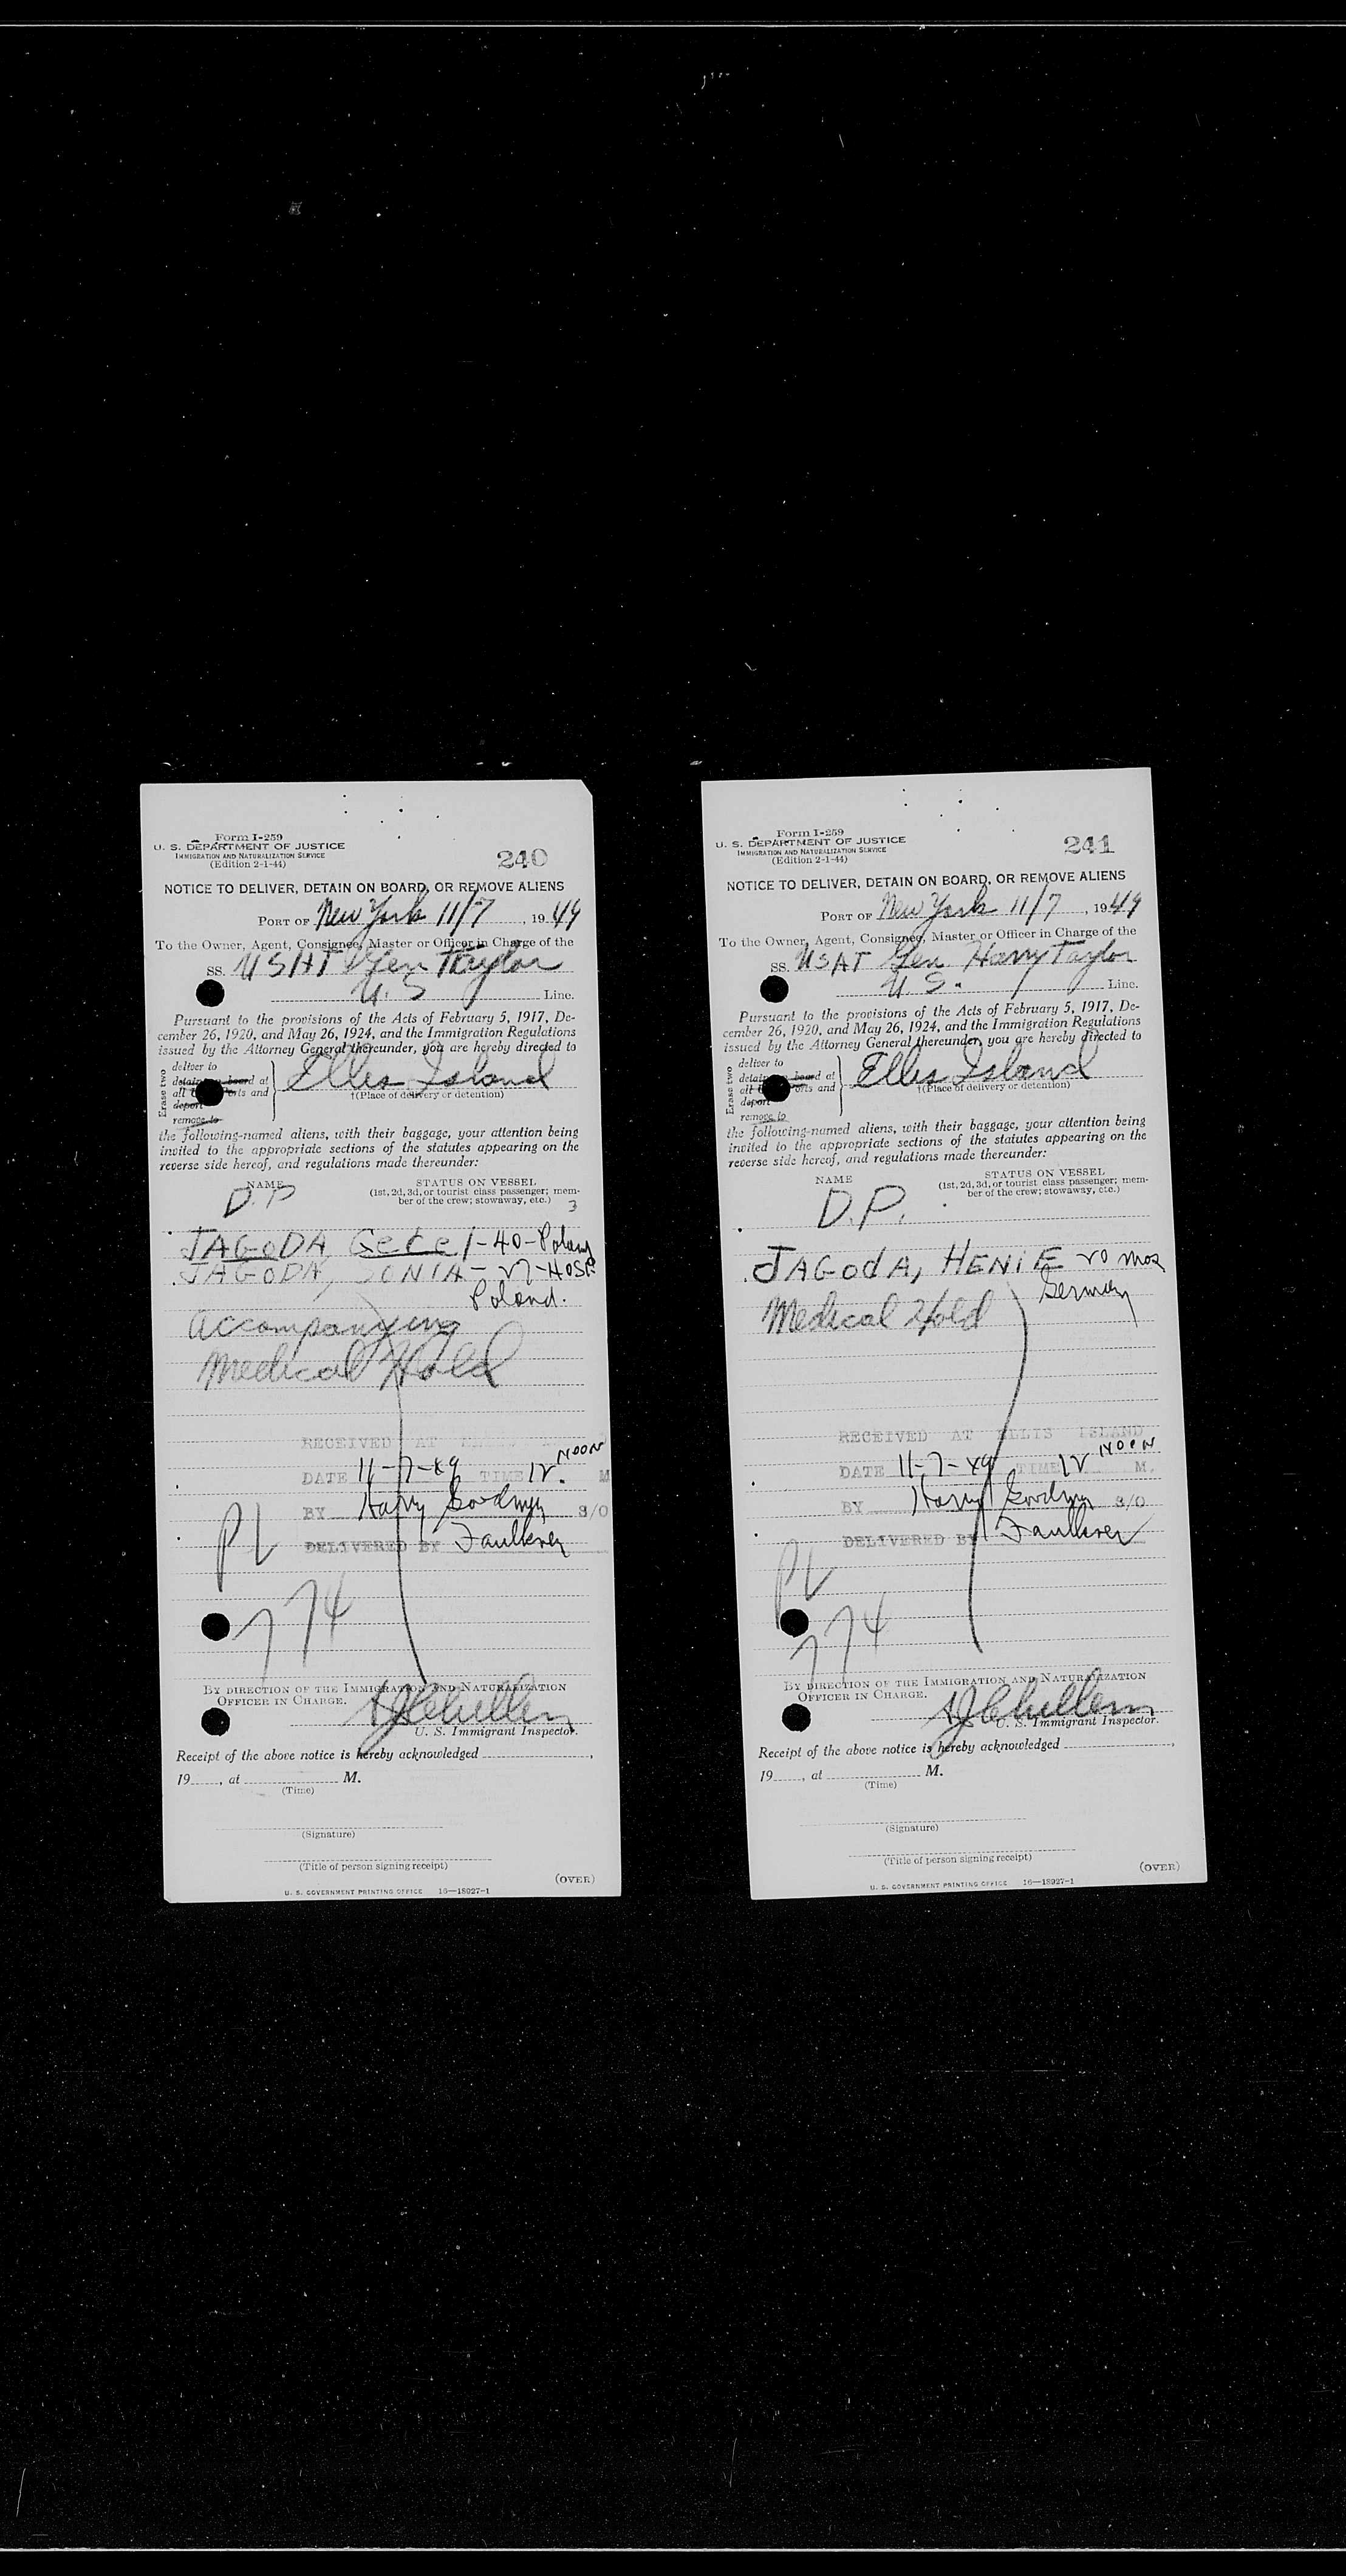 Form I-259
U. S. DEPARTMENT OF JUSTICE
IMMIGRATION AND NATURALIZATION SERVICE
(Edition 2-1-44)
240
NOTICE TO DELIVER, DETAIN ON BOARD, OR REMOVE ALIENS
PORT OF New York 11/7, 1949
To the Owner, Agent, Consignee, Master or Officer in Charge of the
SS. USAT Gen Taylor
U. S Line.
Pursuant to the provisions of the Acts of February 5, 1917, De-
cember 26, 1920, and May 26, 1924, and the Immigration Regulations
issued by the Attorney General thereunder, you are hereby directed to
Erase two
deliver to
detain on board at
all and
deport
remove to
Ellis Island
†(Place of delivery or detention)
the following-named aliens, with their baggage, your attention being
invited to the appropriate sections of the statutes appearing on the
reverse side hereof, and regulations made thereunder:
NAME
STATUS ON VESSEL
(1st, 2d, 3d, or tourist class passenger; mem-
ber of the crew; stowaway, etc.)
D.P
3
JAGODA, Gecel-40-Poland
JAGODA, SONIA-27-HOSP.
Poland.
accompanying
Medical Hold
RECEIVED AT
DATE 11-7-49 TIME 12 NOON M
BY Harry Goodman S/O
DELIVERED BY Faulkner
774
BY DIRECTION OF THE IMMIGRATION AND NATURALIZATION
OFFICER IN CHARGE.
U. S. Immigrant Inspector.
Receipt of the above notice is hereby acknowledged ,
19 , at M.
(Time)
(Signature)
(Title of person signing receipt)
(OVER)
U. S. GOVERNMENT PRINTING OFFICE 16—18027-1
Form I-259
U. S. DEPARTMENT OF JUSTICE
IMMIGRATION AND NATURALIZATION SERVICE
(Edition 2-1-44)
241
NOTICE TO DELIVER, DETAIN ON BOARD, OR REMOVE ALIENS
PORT OF New York 11/7, 1949
To the Owner, Agent, Consignee, Master or Officer in Charge of the
SS. USAT Gen Harry Taylor
U. S. Line.
Pursuant to the provisions of the Acts of February 5, 1917, De-
cember 26, 1920, and May 26, 1924, and the Immigration Regulations
issued by the Attorney General thereunder, you are hereby directed to
Erase two
deliver to
detain on board at
all and
deport
remove to
Ellis Island
†(Place of delivery or detention)
the following-named aliens, with their baggage, your attention being
invited to the appropriate sections of the statutes appearing on the
reverse side hereof, and regulations made thereunder:
NAME
STATUS ON VESSEL
(1st, 2d, 3d, or tourist class passenger; mem-
ber of the crew; stowaway, etc.)
D.P.
JAGODA, HENIE 20 mos
Germany
Medical Hold
RECEIVED AT ELLIS ISLAND
DATE 11-7-49 TIME 12 NOON M.
BY Harry Goodman S/O
DELIVERED BY Faulkner
774
BY DIRECTION OF THE IMMIGRATION AND NATURALIZATION
OFFICER IN CHARGE.
U. S. Immigrant Inspector.
Receipt of the above notice is hereby acknowledged ,
19 , at M.
(Time)
(Signature)
(Title of person signing receipt)
(OVER)
U. S. GOVERNMENT PRINTING OFFICE 16—18027-1